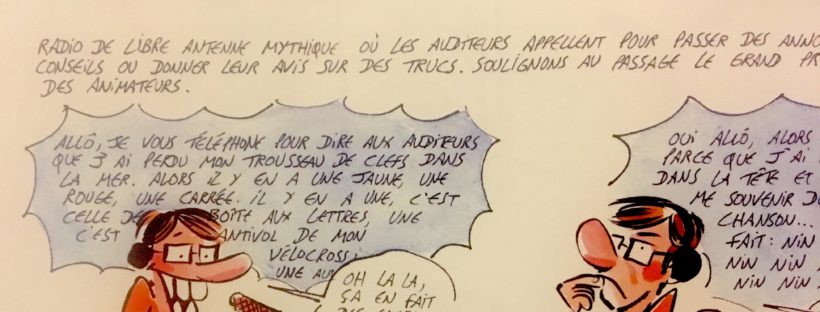 RADIO DE LIBRE ANTENNE MYTHIQUE OÙ LES AUDITEURS APPELLENT POUR PASSER DES
CONSEILS OU DONNER LEUR AVIS SUR DES TRUCS. SOULIGNONS AU PASSAGE LE GRAND
DES ANIMATEURS.
ALLÔ, JE VOUS TÉLÉPHONE POUR DIRE AUX AUDITEURS
QUE J'AI PERDU MON TROUSSEAU DE CLEFS DANS
LA MER. ALORS IL Y EN A UNE JAUNE, UNE
ROUGE, UNE CARRÉE. IL Y EN A UNE, C'EST
CELLE DE BOÎTE AUX LETTRES, UNE
C'EST ANTIVOL DE MON
VÉLOCROSS
UNE
OH LA LA,
ÇA EN FAIT
OUI ALLÔ, ALORS
PARCE QUE J'AI
DANS LA TÊTE ET
ME SOUVENIR
CHANSON...
FAIT : NIN
NIN NIN
NIN NIN